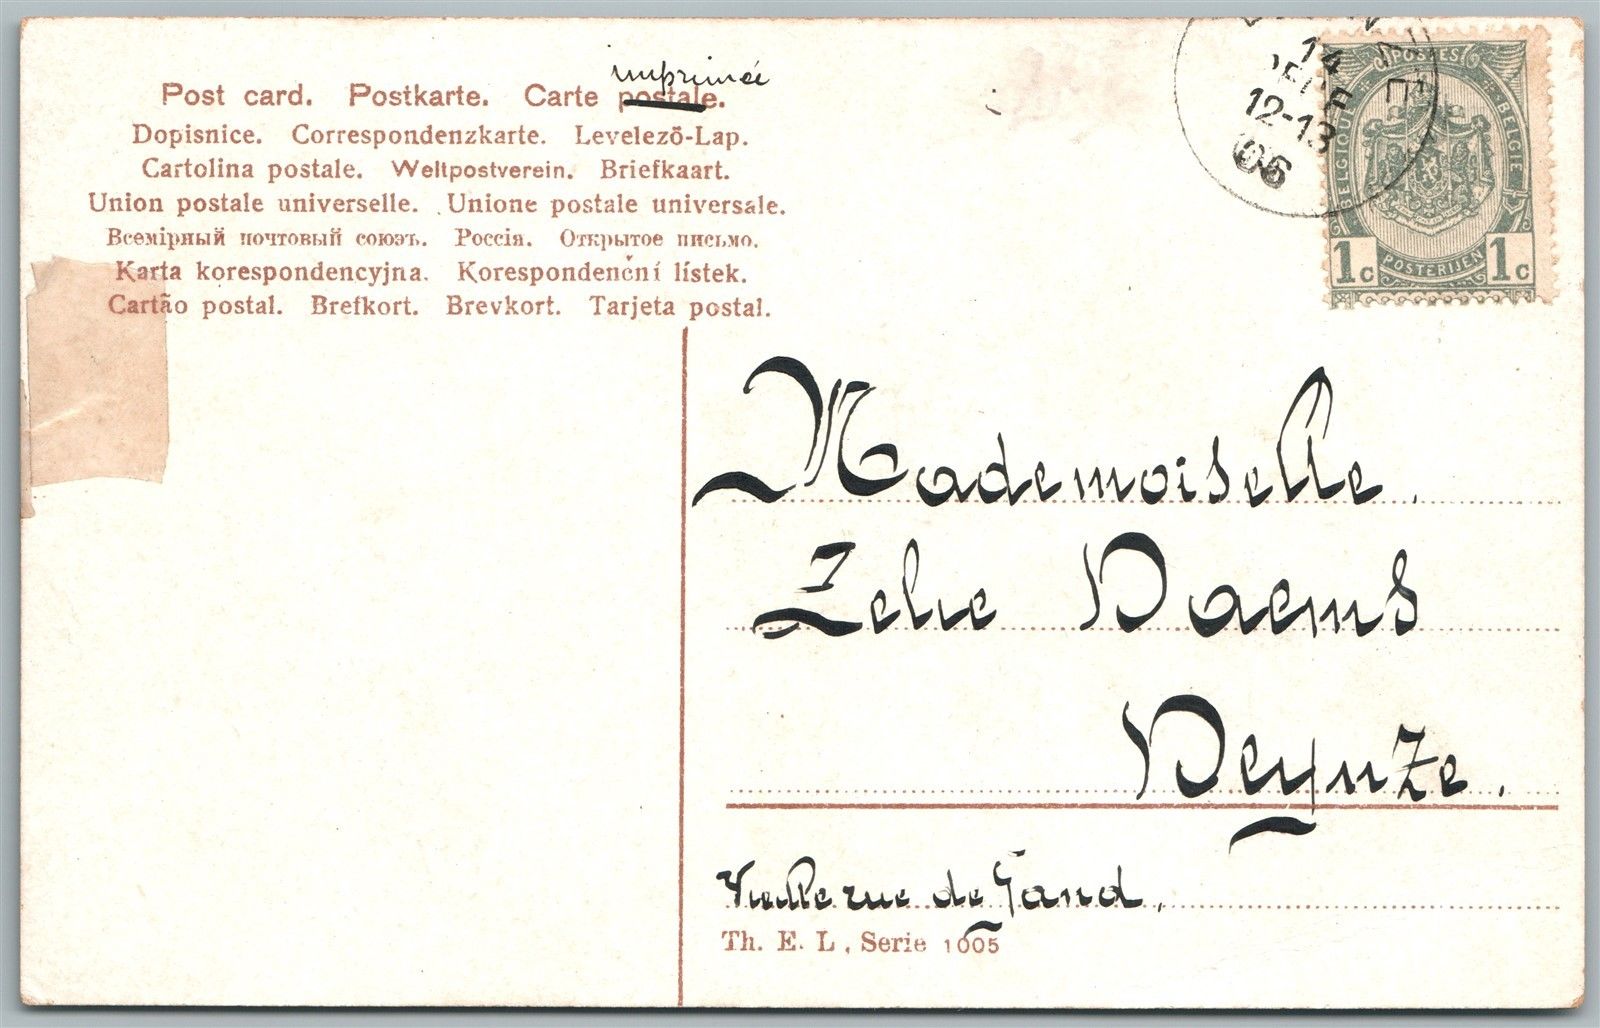 imprimée
Post card. Postkarte. Carte postale.
Dopisnice. Correspondenzkarte. Levelező-Lap.
Cartolina postale. Weltpostverein. Briefkaart.
Union postale universelle. Unione postale universale.
Всемірный почтовый союзъ. Россія. Открытое письмо.
Karta korespondencyjna. Korespondenční lístek.
Cartão postal. Brefkort. Brevkort. Tarjeta postal.
14
12-13
06
POSTES
BELGIQUE
BELGIE
1c 1c
POSTERIJEN
Mademoiselle.
Zelie Daems
Deynze.
Vieille rue de Gand.
Th. E. L. Serie 1005